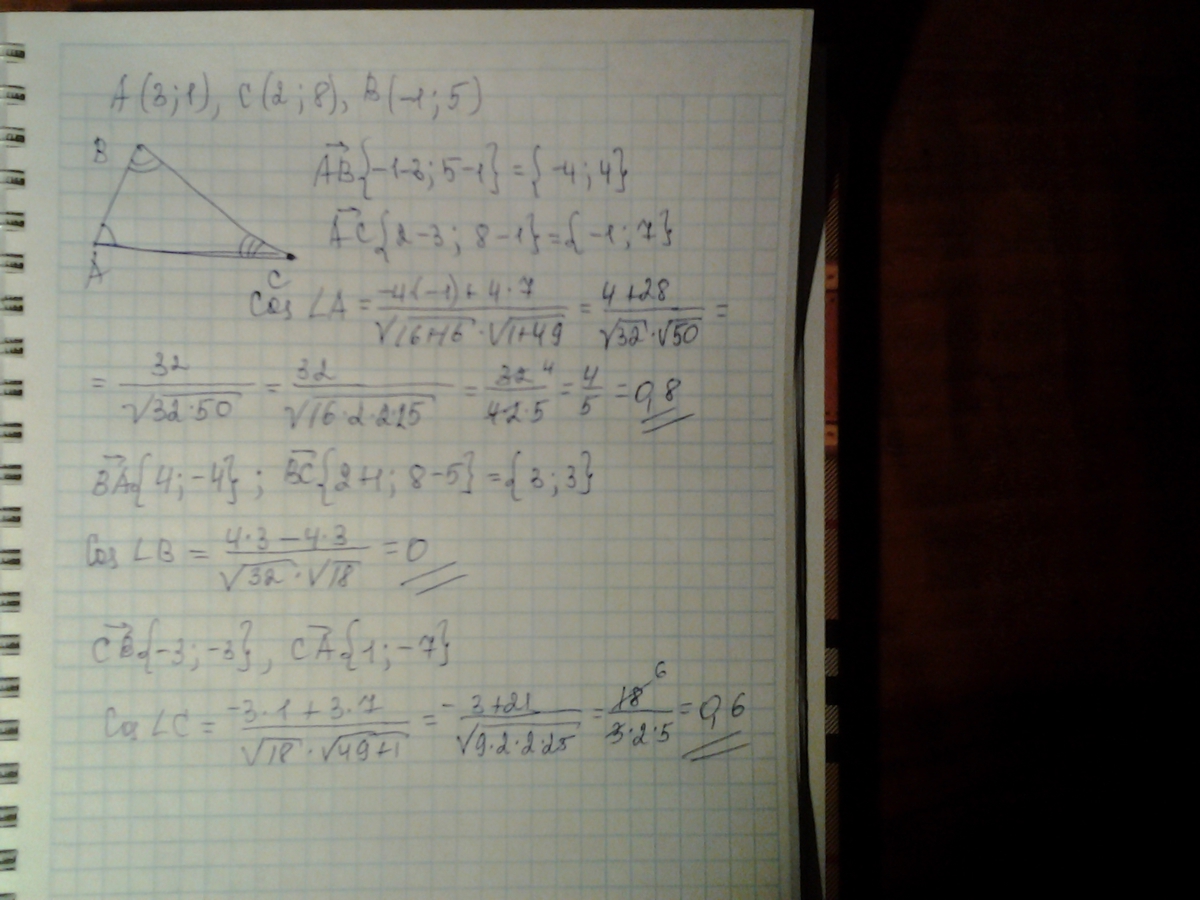 A(3;1), C(2;8), B(-1;5)
B
A
C
AB{-1-3; 5-1} = {-4; 4}
AC{2-3; 8-1} = {-1; 7}
Cos ∠A = (-4(-1)+4·7)/(√16+16 · √1+49) = (4+28)/(√32 · √50) =
= 32/√32·50 = 32/√16·2·2·25 = 32 4/4·2·5 = 4/5 = 0,8
BA{4; -4}; BC{2+1; 8-5} = {3; 3}
Cos ∠B = (4·3-4·3)/(√32 · √18) = 0
CB{-3; -3}, CA{1; -7}
Cos ∠C = (-3·1+3·7)/(√18 · √49+1) = (-3+21)/√9·2·2·25 = 18 6/3·2·5 = 0,6